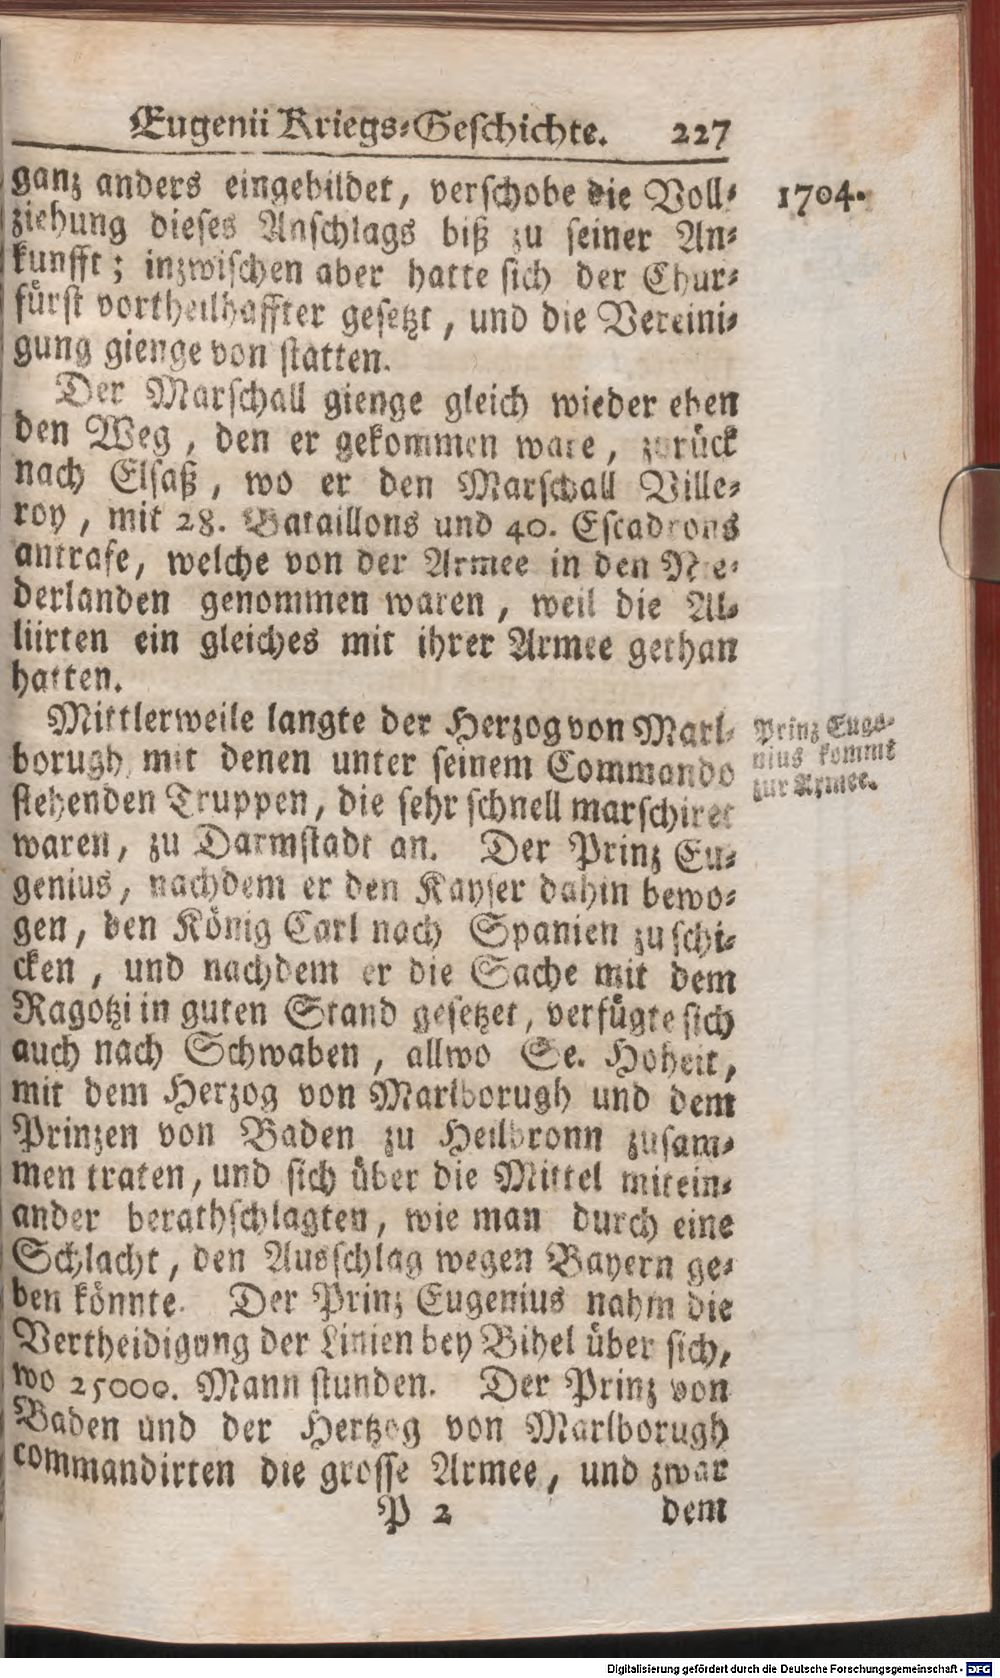 Eugenii Kriegs-Geschichte. 227
ganz anders eingebildet, verschobe die Voll-
1704.
ziehung dieses Anschlags biß zu seiner An-
kunfft; inzwischen aber hatte sich der Chur-
fürst vortheilhaffter gesetzt, und die Vereini-
gung gienge von statten.
Der Marschall gienge gleich wieder eben
den Weg, den er gekommen ware, zurück
nach Elsaß, wo er den Marschall Ville-
roy, mit 28. Bataillons und 40. Escadrons
antrafe, welche von der Armee in den Nie-
derlanden genommen waren, weil die Al-
liirten ein gleiches mit ihrer Armee gethan
hatten.
Mittlerweile langte der Herzog von Marl-
Prinz Euge-
nius kommt
zur Armee.
borugh mit denen unter seinem Commando
stehenden Truppen, die sehr schnell marschiret
waren, zu Darmstadt an. Der Prinz Eu-
genius, nachdem er den Kayser dahin bewo-
gen, den König Carl nach Spanien zu schi-
cken, und nachdem er die Sache mit dem
Ragotzi in guten Stand gesetzet, verfügte sich
auch nach Schwaben, allwo Se. Hoheit,
mit dem Herzog von Marlborugh und dem
Prinzen von Baden zu Heilbronn zusam-
men traten, und sich über die Mittel mitein-
ander berathschlagten, wie man durch eine
Schlacht, den Ausschlag wegen Bayern ge-
ben könnte. Der Prinz Eugenius nahm die
Vertheidigung der Linien bey Bihel über sich,
wo 25000. Mann stunden. Der Prinz von
Baden und der Hertzog von Marlborugh
commandirten die grosse Armee, und zwar
P 2 dem
Digitalisierung gefördert durch die Deutsche Forschungsgemeinschaft - DFG